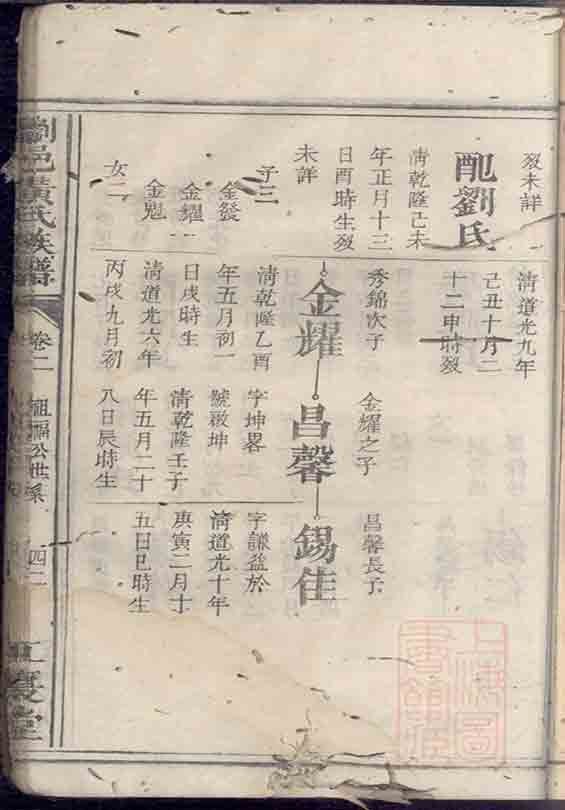 歿未詳
配劉氏
清乾隆己未
年正月十三
日酉時生歿
未詳
子三
金發
金耀
金魁
女二
清道光九年
己丑十月二
十二申時歿
秀錦次子
金耀
清乾隆乙酉
年五月初一
日戌時生
清道光六年
丙戌九月初
金耀之子
昌馨
字坤畧
號啟坤
清乾隆壬子
年五月二十
八日辰時生
昌馨長子
錫佳
字謙益於
清道光十年
庚寅二月十
五日巳時生
瀏邑黃氏族譜
卷二
祖福公世系
四二
上海圖書館藏